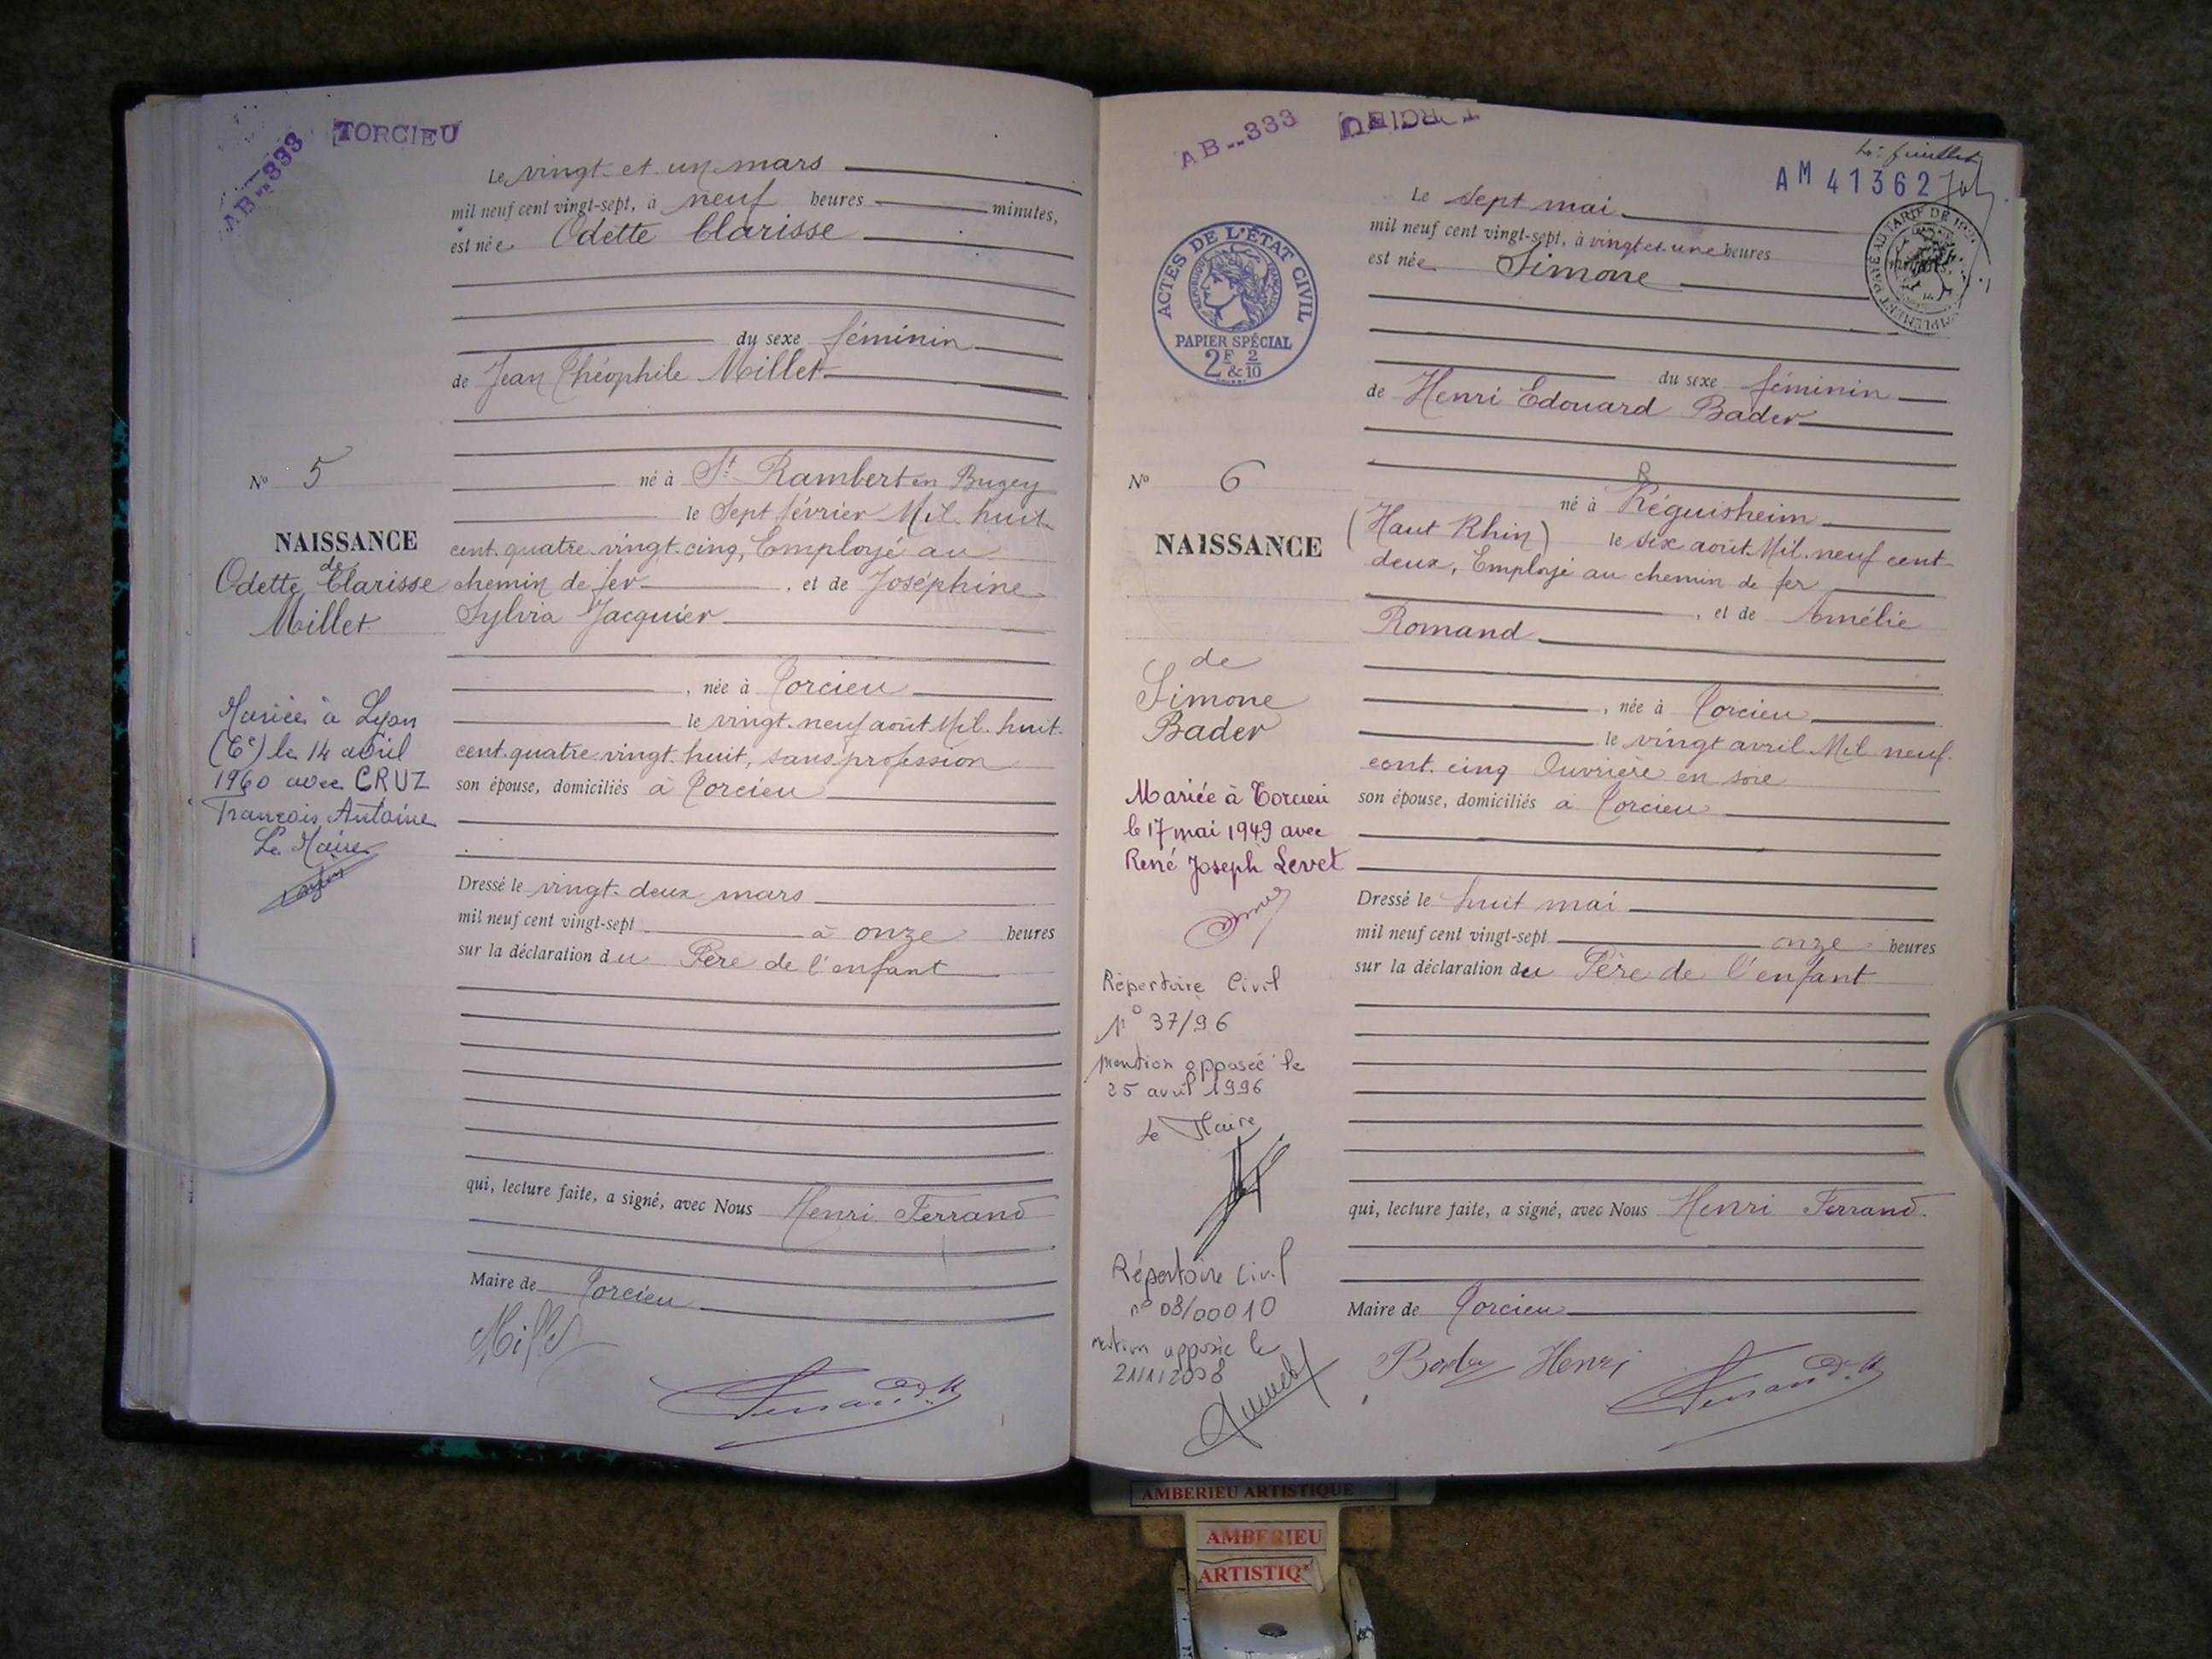 AB--333
TORCIEU
Le vingt et un mars
mil neuf cent vingt-sept, à neuf heures minutes,
est née Odette Clarisse
du sexe féminin
de Jean Théophile Millet
né à St Rambert en Bugey
le Sept février Mil. huit
cent. quatre. vingt. cinq, Employé au
chemin de fer, et de Joséphine
Sylvia Jacquier
, née à Torcieu
le vingt. neuf août Mil. huit.
cent. quatre vingt. huit, sans profession
son épouse, domiciliés à Torcieu
Dressé le vingt. deux mars
mil neuf cent vingt-sept à onze heures
sur la déclaration du Père de l'enfant
qui, lecture faite, a signé, avec Nous Henri Ferrand
Maire de Torcieu
Millet
Nº 5
NAISSANCE
de
Odette Clarisse
Millet
Mariée à Lyon
(6e) le 14 avril
1960 avec CRUZ
François Antoine
Le Maire
AB--333
TORCIEU
AM 41362
ACTES DE L'ÉTAT CIVIL
RÉPUBLIQUE FRANÇAISE
PAPIER SPÉCIAL
2F & 2/10
Le Sept mai
mil neuf cent vingt-sept, à vingt et une heures minutes,
est née Simone
du sexe féminin
de Henri Edouard Bader
R
né à Réguisheim
(Haut Rhin) le six août Mil. neuf cent
deux, Employé au chemin de fer
, et de Amélie
Romand
, née à Torcieu
le vingt avril Mil neuf.
cent. cinq Ouvrière en soie
son épouse, domiciliés à Torcieu
Dressé le huit mai
mil neuf cent vingt-sept onze heures
sur la déclaration du Père de l'enfant
qui, lecture faite, a signé, avec Nous Henri Ferrand.
Maire de Torcieu
Bader Henri
Nº 6
NAISSANCE
de
Simone
Bader
Mariée à Torcieu
le 17 mai 1949 avec
René Joseph Levet
Répertoire Civil
n° 37/96
mention opposée le
25 avril 1996
Le Maire
Répertoire Civil
n° 08/00010
mention apposée le
21/1/2008
AMBERIEU ARTISTIQUE
AMBERIEU
ARTISTIQUE